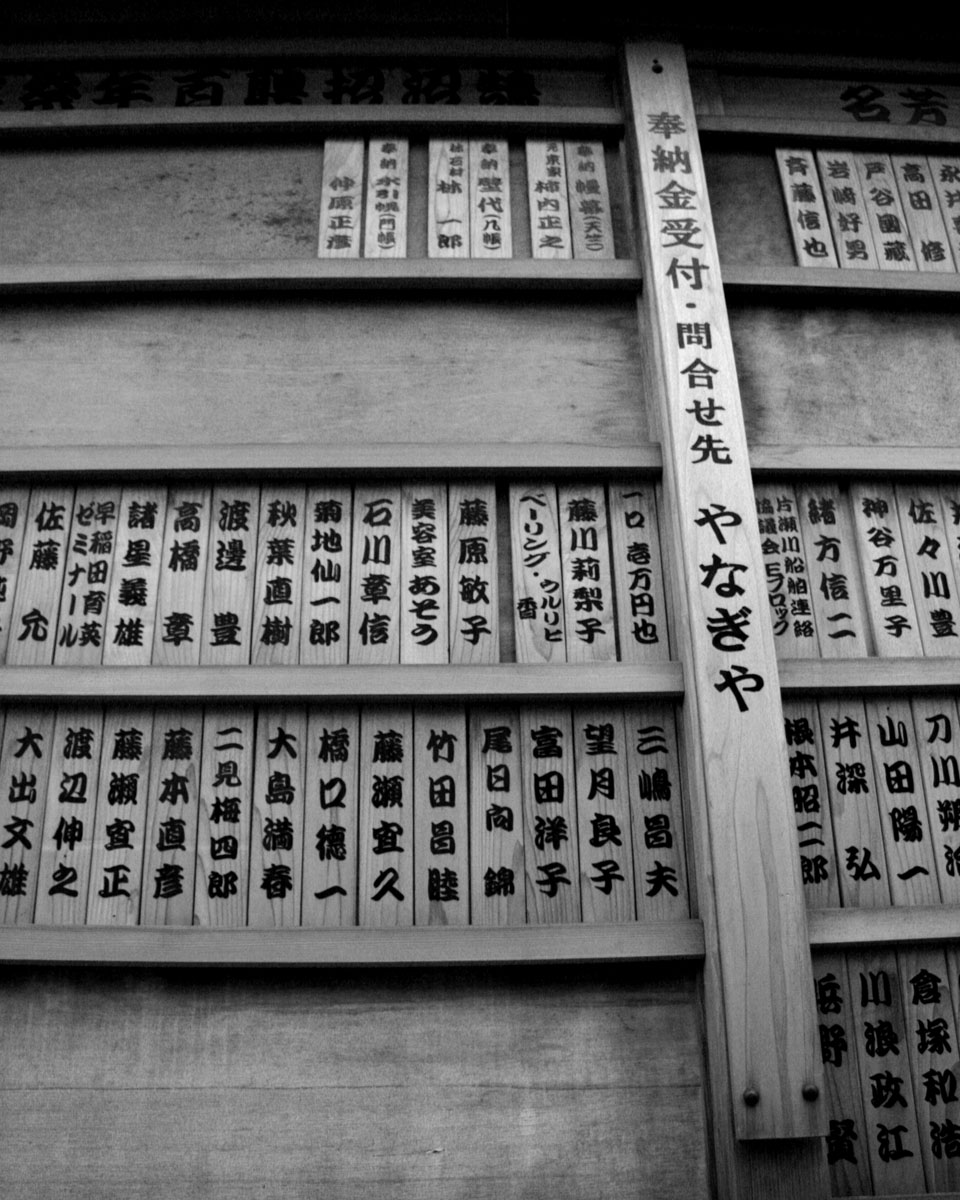 芳名
奉納金受付・問合せ先 やなぎや
斉藤信也
岩崎好男
戸谷國蔵
高田 修
奉納 幔幕(天竺)
柿内正之
奉納 壁代(几帳)
林 一郎
奉納 水引幌(門帳)
仲原正彦
佐々川豊
神谷万里子
緒方信二
片瀬川船舶連絡
協議会Eブロック
一口 壱万円也
藤川莉梨子
ベーリング・ウルリヒ
香
藤原敏子
美容室あそう
石川章信
菊地仙一郎
秋葉直樹
渡邊 豊
高橋 章
諸星義雄
早稲田育英
ゼミナール
佐藤 允
山田陽一
井深 弘
根本昭二郎
三嶋昌夫
望月良子
富田洋子
尾日向 錦
竹田昌睦
藤瀬宜久
橋口徳一
大島満春
二見梅四郎
藤本直彦
藤瀬宜正
渡辺伸之
大出文雄
倉塚和浩
川浪政江